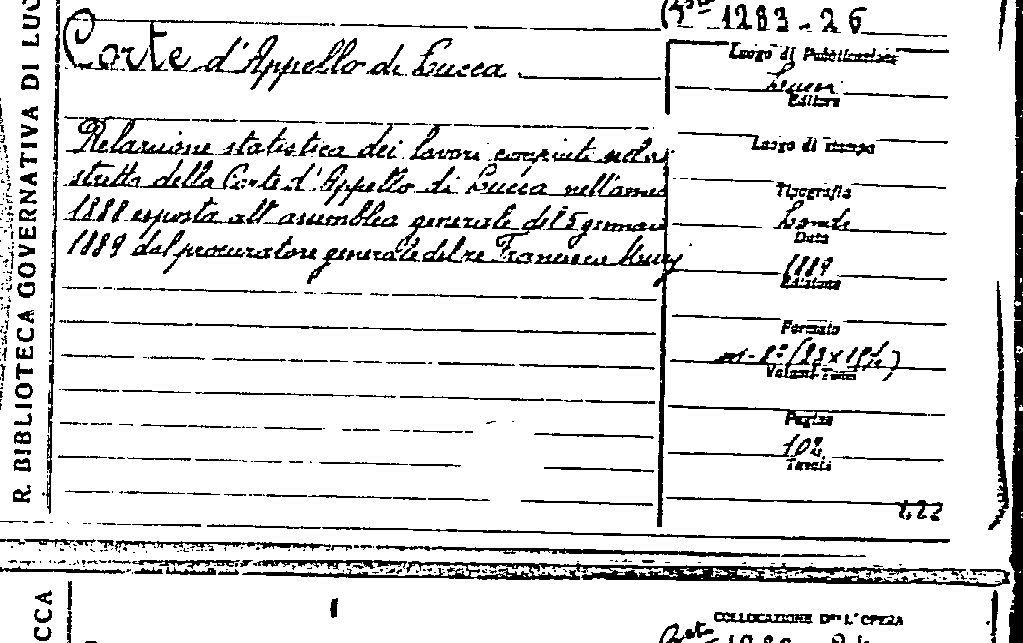 R. BIBLIOTECA GOVERNATIVA DI LUC
1283-26
Corte d'Appello di Lucca
Relazione statistica dei lavori compiuti nel di
stretto della Corte d'Appello di Lucca nell'anno
1888 esposta all'assemblea generale del 5 gennaio
1889 dal procuratore generale del re Francesco
Luogo di Pubblicazione
Lucca
Editore
Luogo di stampa
Tipografia
Landi
Data
1889
Edizione
Formato
Volumi-Tomi
Pagine
102
Tavole
222
CCA
COLLOCAZIONE DELL'OPERA